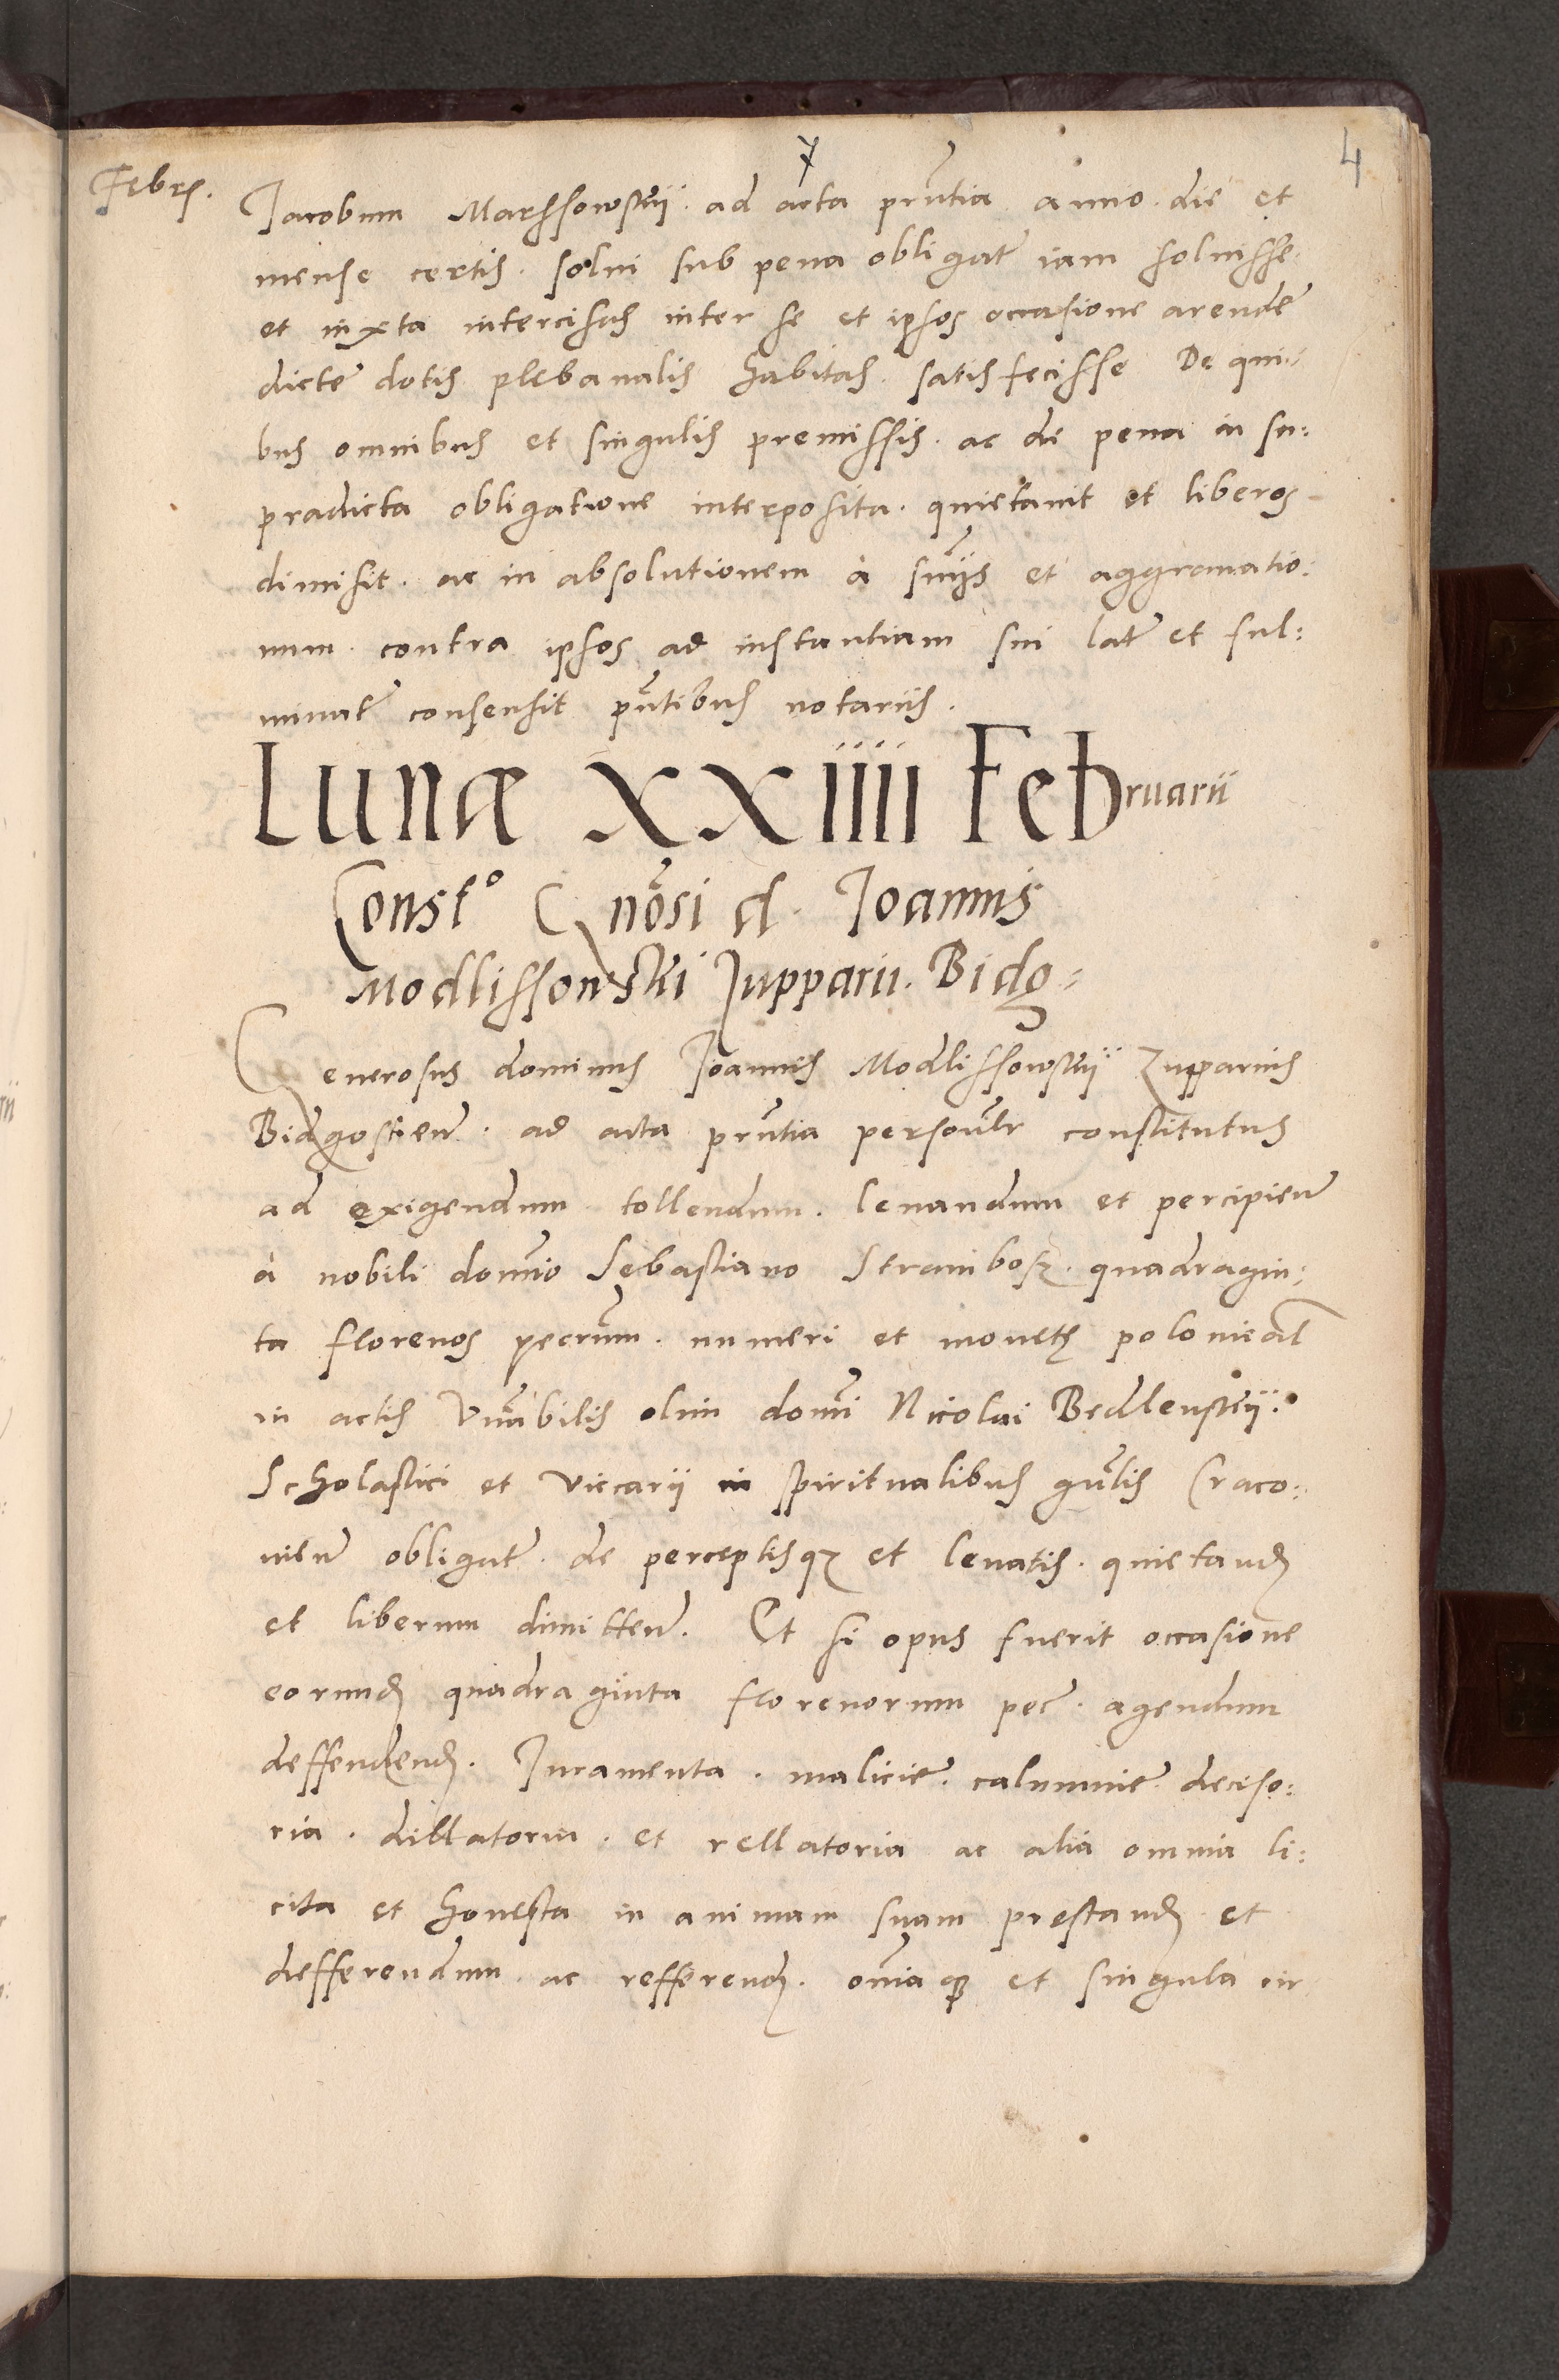 7
4
Febr.
Iacobum Marssowskij. ad acta pn̄tia anno. die et
mense certis. solui sub pena obligat̄ iam soluisse.
et iuxta intercisas inter se et ipsos occasione arende
dicte dotis plebanalis habitas. satisfecisse De qui=
bus omnibus et singulis premissis. ac de pena in su:
pradicta obligatione interposita. quietauit et liberos
dimisit. ac in absolutionem à sn̄ijs et aggrauatio:
num. contra ipsos ad instantiam sui lat̄ et ful:
minat̄ consensit pn̄tibus notariis.
Lunæ XXIIII Februarii
Const° Gnōsi d. Ioannis
Modlissowski Iupparii. Bidg=
Generosus dominus Ioannis Modlissowskij Zupparius
Bidgostien̄. ad acta pn̄tia personl̄r constitutus
ad exigendum. tollendum. leuandum et percipien̄
à nobili domīo Sebastiano Strambosz. quadragin:
ta florenos pecn̄m. numeri et monetę polonical̄
in actis Vn̄abilis olim domī Nicolai Bedlenskij.
Scholastici et Viccarij in spiritualibus gn̄lis Craco:
uien̄ obligat̄. de perceptisqꝫ et leuatis. quietand̄
et liberum dimitten̄. Et si opus fuerit occasione
eorund̄ quadraginta florenorum pec̄. agendum
deffendend̄. Iuramenta. malicie. calumnie. deciso:
ria. dillatoria. et rellatoria ac alia omnia li:
cita et honesta in animam suam prestand̄ et
defferendum. ac refferend̄. om̄iaqꝫ et singula cir